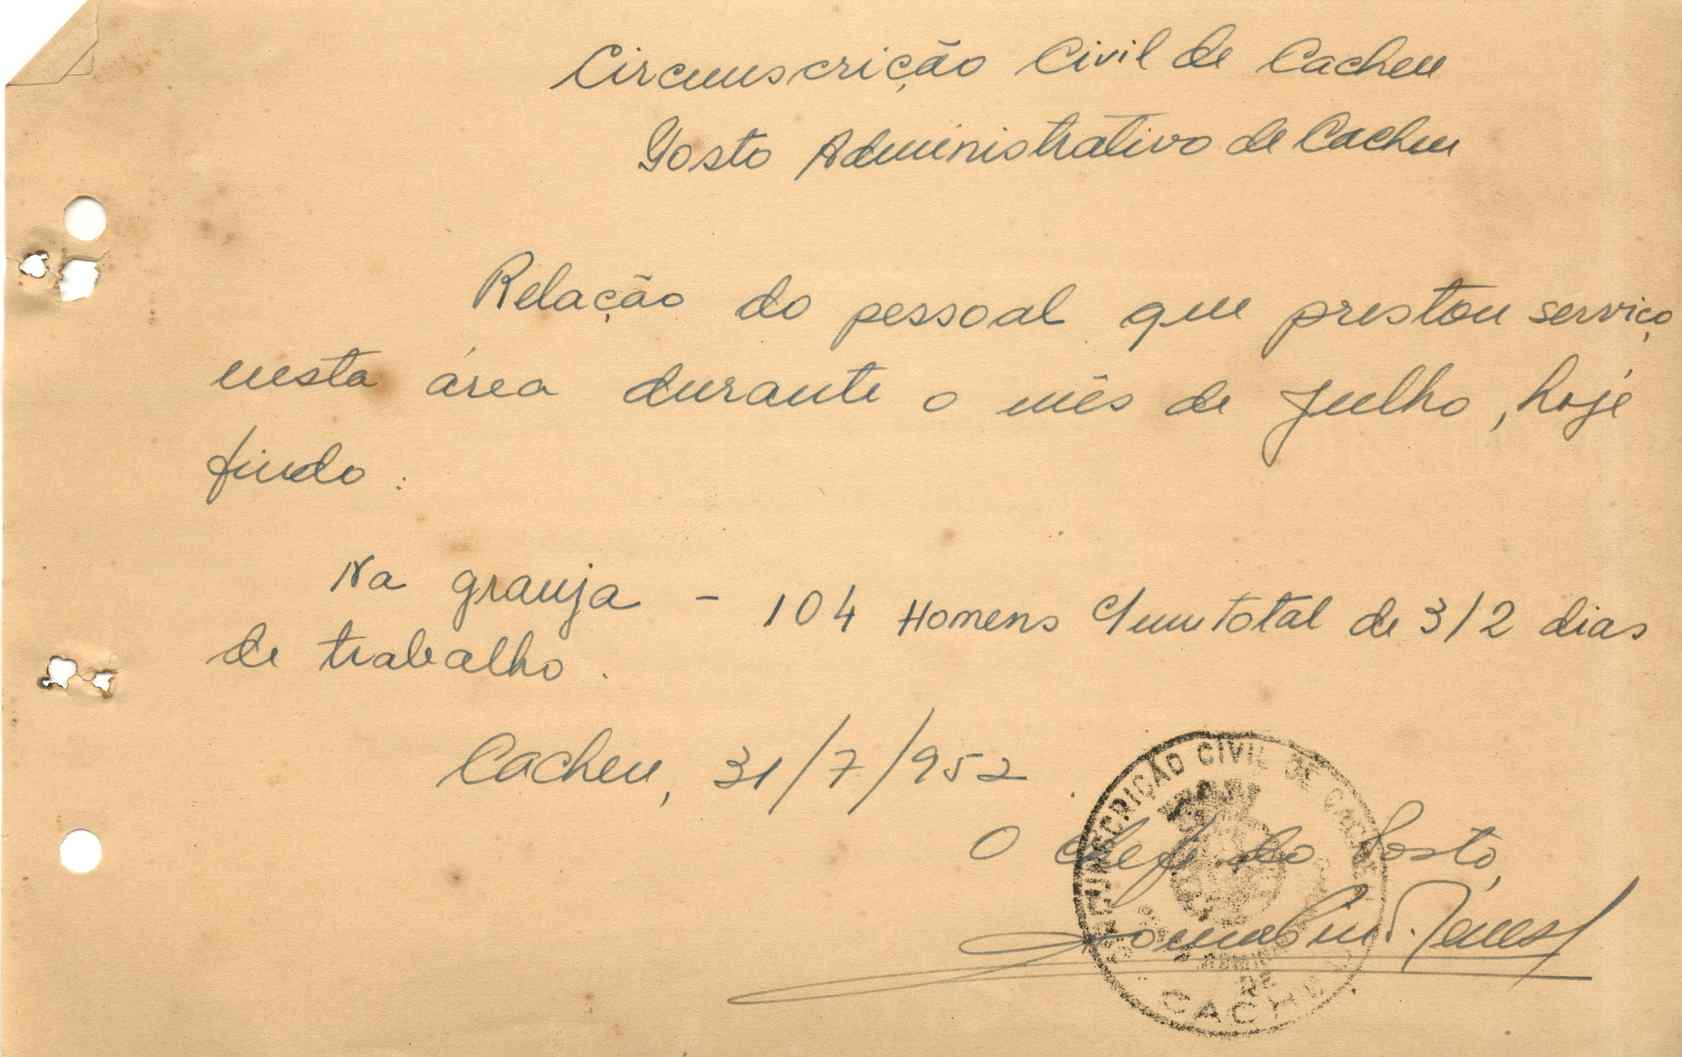 Circunscrição Civil de Cacheu
Posto Administrativo de Cacheu
Relação do pessoal que prestou serviço
nesta área durante o mês de Julho, hoje
findo:
Na granja - 104 Homens c/um total de 312 dias
de trabalho.
Cacheu, 31/7/952.
O Chefe do Posto,
CIRCUNSCRIÇÃO CIVIL DE CACHEU
DE
CACHEU